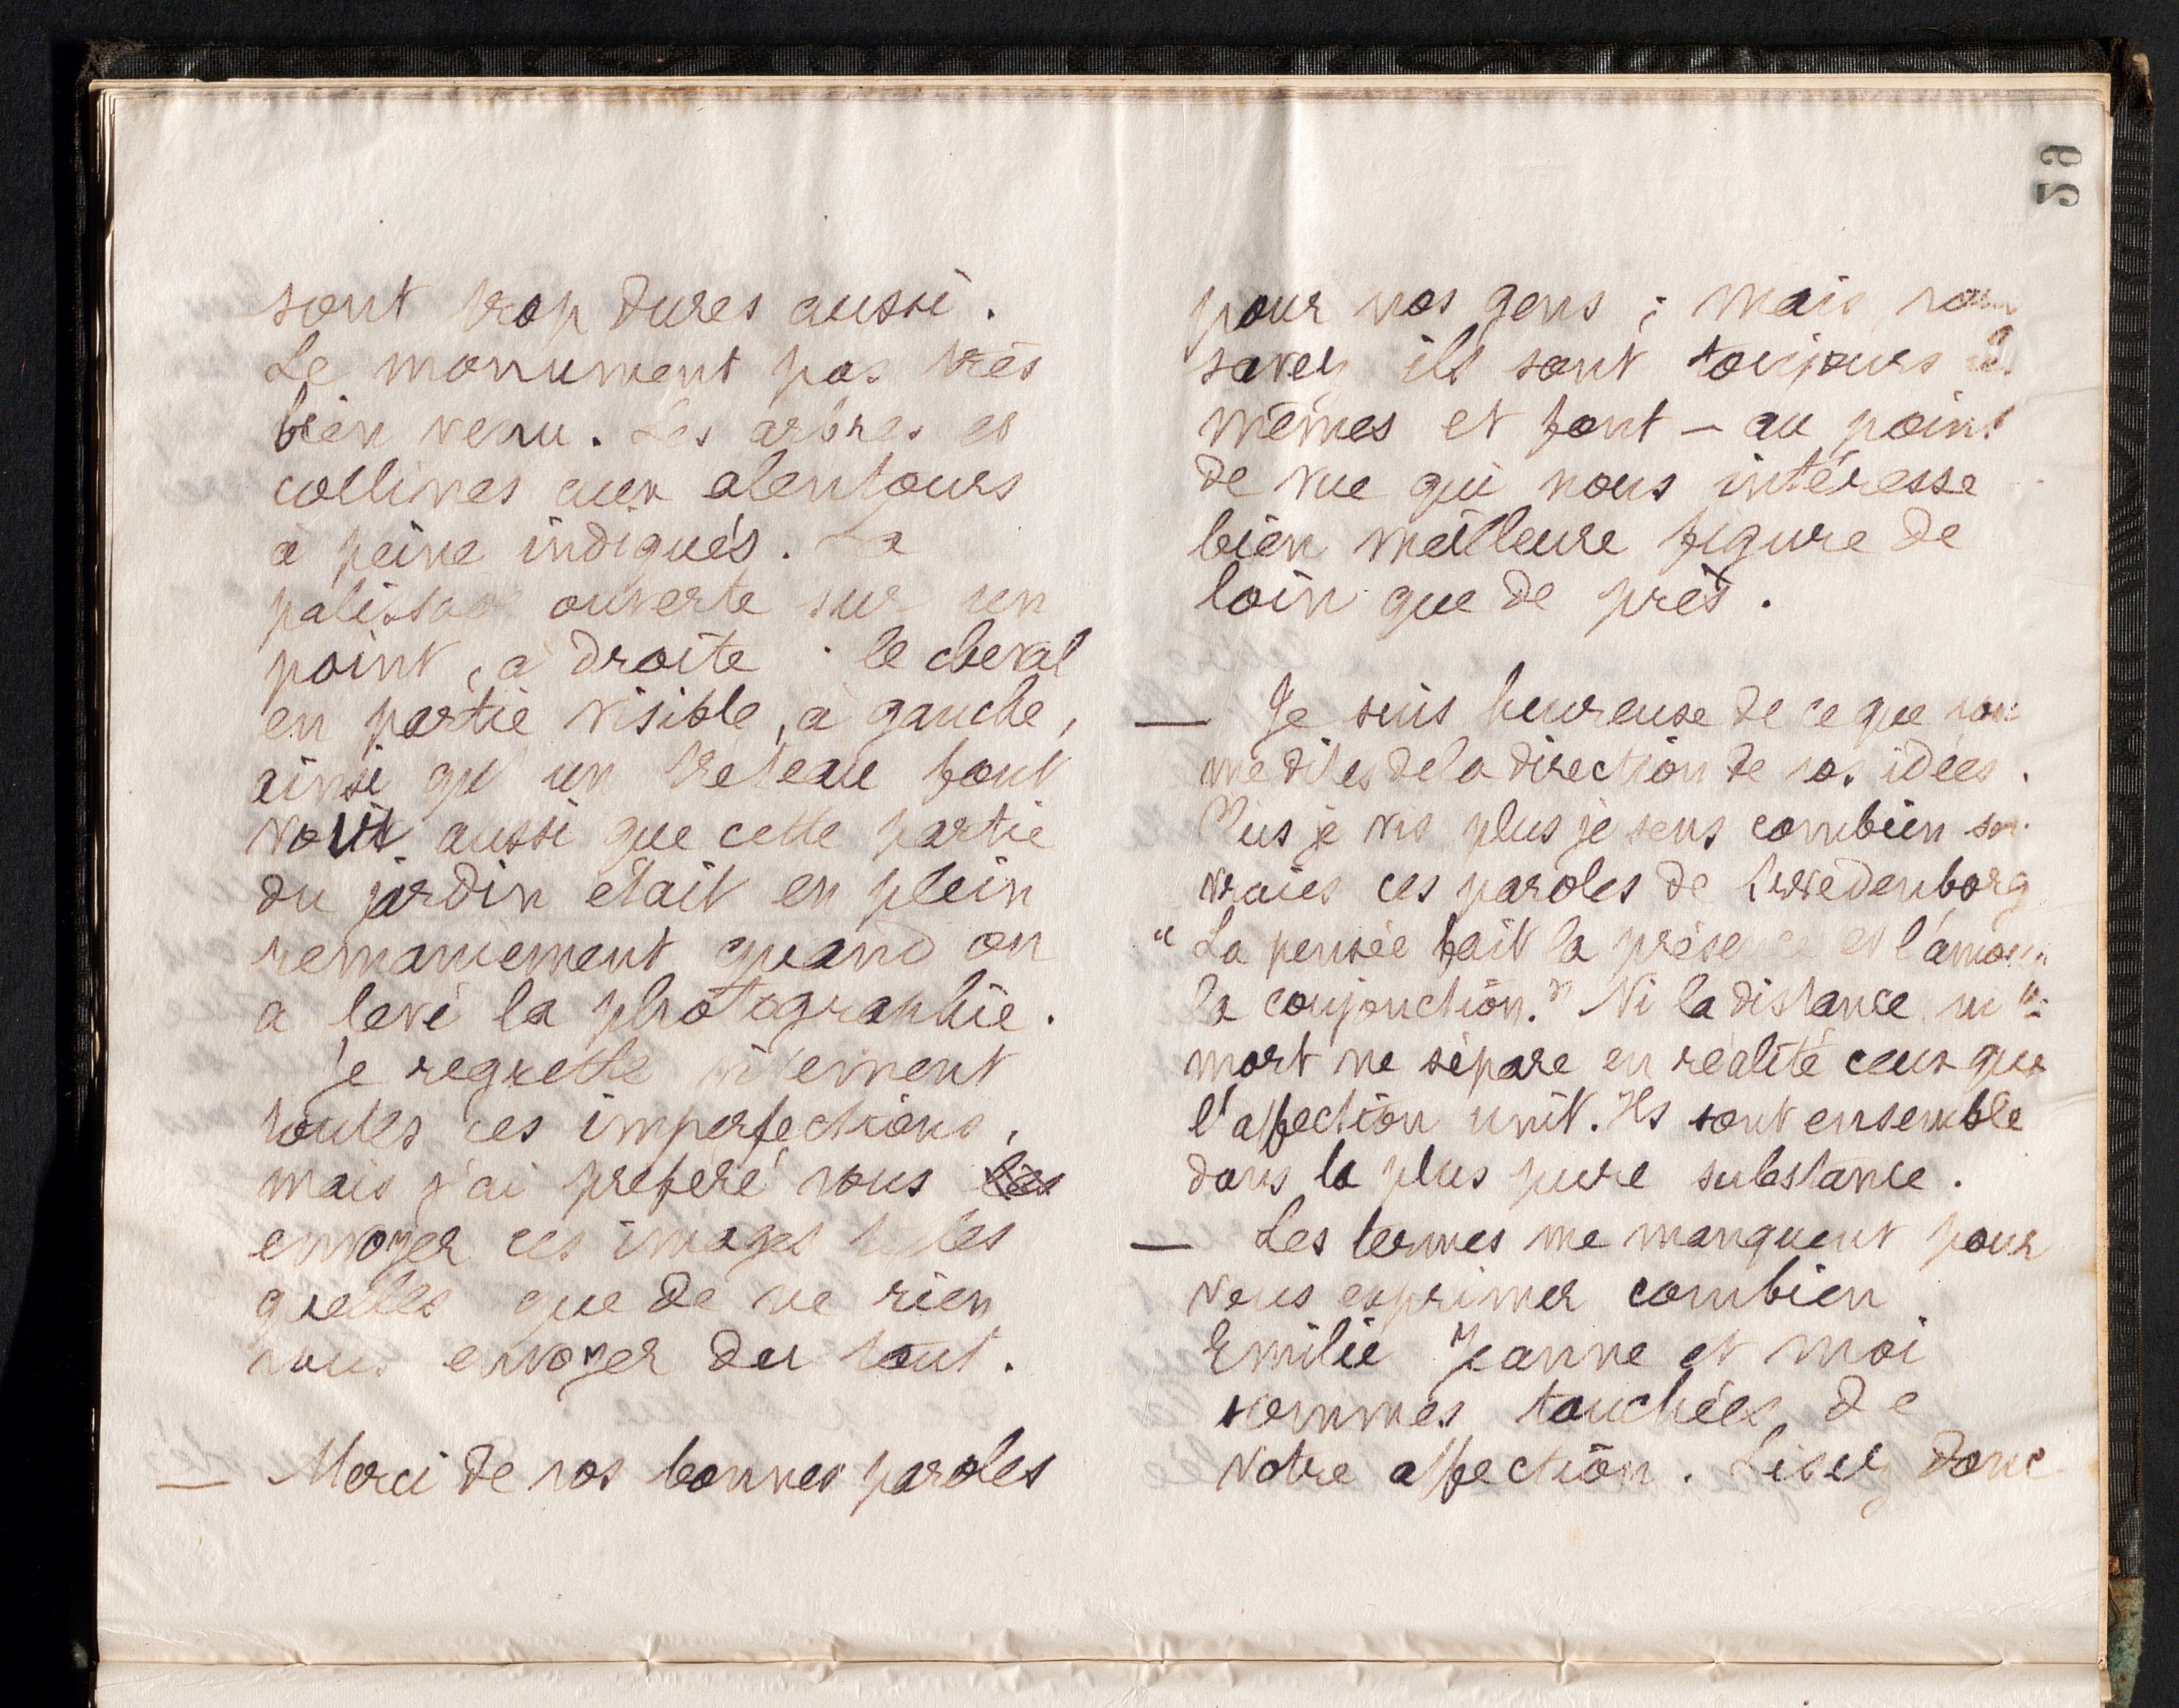 sont trop dures aussi.
Le monument pas très
bien venu. Les arbres et
collines aux alentours
à peine indiqués. La
palissade ouverte sur un
point, à droite : le cheval
en partie visible, à gauche,
ainsi qu'un tréteau font
voir aussi que cette partie
du jardin était en plein
remaniement quand on
a levé la photographie.
Je regrette vivement
toutes ces imperfections,
mais j'ai préféré vous les
envoyer ces images telles
quelles que de ne rien
vous envoyer du tout.
— Merci de vos bonnes paroles
59
pour nos gens ; mais, vous
savez ils sont toujours les
mêmes et font — au point
de vue qui nous intéresse
bien meilleure figure de
loin que de près.
— Je suis heureuse de ce que vous
me dites de la direction de vos idées.
Plus je vis plus je sens combien sont
vraies ces paroles de Swedenborg
"La pensée fait la présence et l'amour
la conjonction." Ni la distance ni la
mort ne sépare en réalité ceux que
l'affection unit. Ils sont ensemble
dans la plus pure substance.
— Les termes me manquent pour
vous exprimer combien
Emilie Jeanne et moi
sommes touchées de
votre affection. Lisez donc